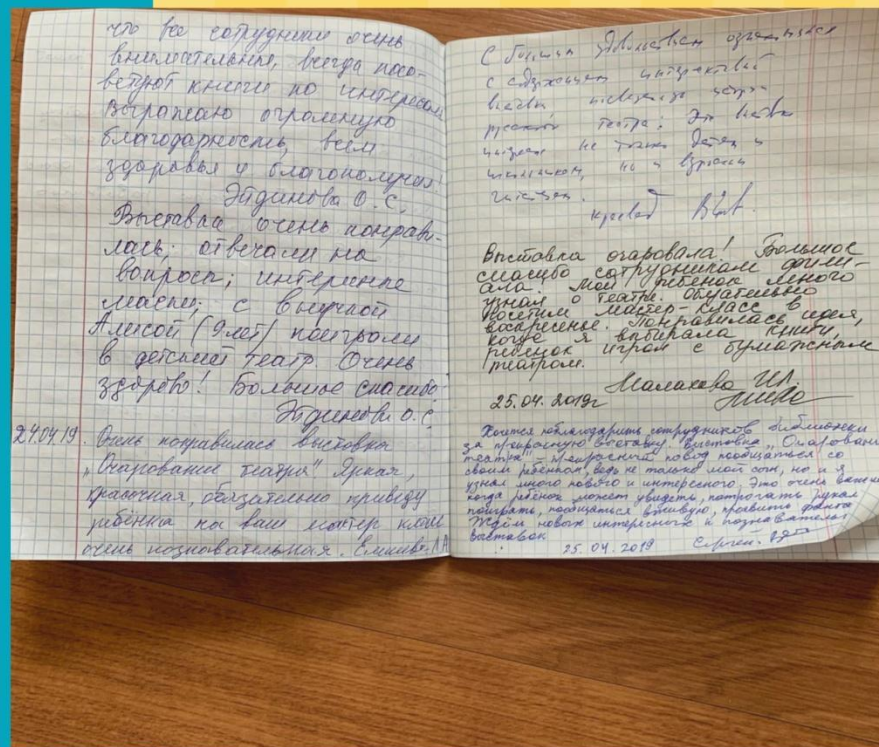 что все сотрудники очень
внимательны, всегда посо-
ветуют книги по интересам
Выражаю огромную
благодарность, всем
здоровья и благополучия!
Эйдинова О.С.
Выставка очень понрави-
лась; отвечали на
вопросы; интересные
маски; с внучкой
Алисой (9 лет) поиграли
в детский театр. Очень
здорово! Большое спасибо
Эйдинова О.С.
24.04.19. Очень понравилась выставка
„Очарование театра". Яркая,
красочная, обязательно приведу
ребёнка на ваш мастер класс
очень познавательная.
С большим удовольствием
с
русского театра. Эта выставка
не только детям и
школьникам, но и взрослым
Выставка очаровала! Большое
спасибо сотрудникам фили-
ала. Мой ребёнок много
узнал о театре. Обязательно
посетим мастер-класс в
воскресенье. Понравилась идея,
когда я выбирала книги,
ребенок играл с бумажным
театром.
25.04.2019г Малахова
Хочется поблагодарить сотрудников библиотеки
за прекрасную выставку. Выставка „Очарование
театра" – прекрасный повод пообщаться со
своим ребёнком, ведь не только мой сын, но и я
узнал много нового и интересного. Это очень важно
когда ребёнок может увидеть, потрогать руками
поиграть, пообщаться вживую, проявить
Ждём новых интересных и познавательных
выставок
25.04.2019 Сергей